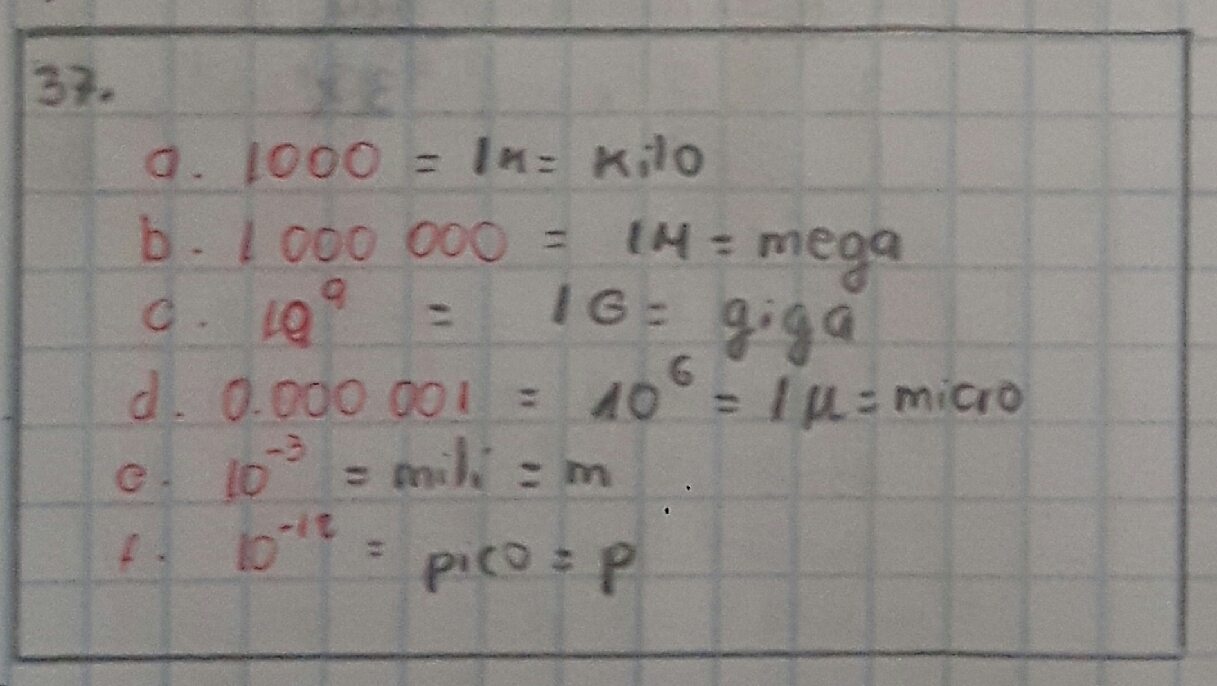 37.
a. 1000 = 1K = Kilo
b. 1 000 000 = 1M = mega
c. 10⁹ = 1G = giga
d. 0.000 001 = 10⁶ = 1µ = micro
e. 10⁻³ = mili = m
f. 10⁻¹² = pico = p